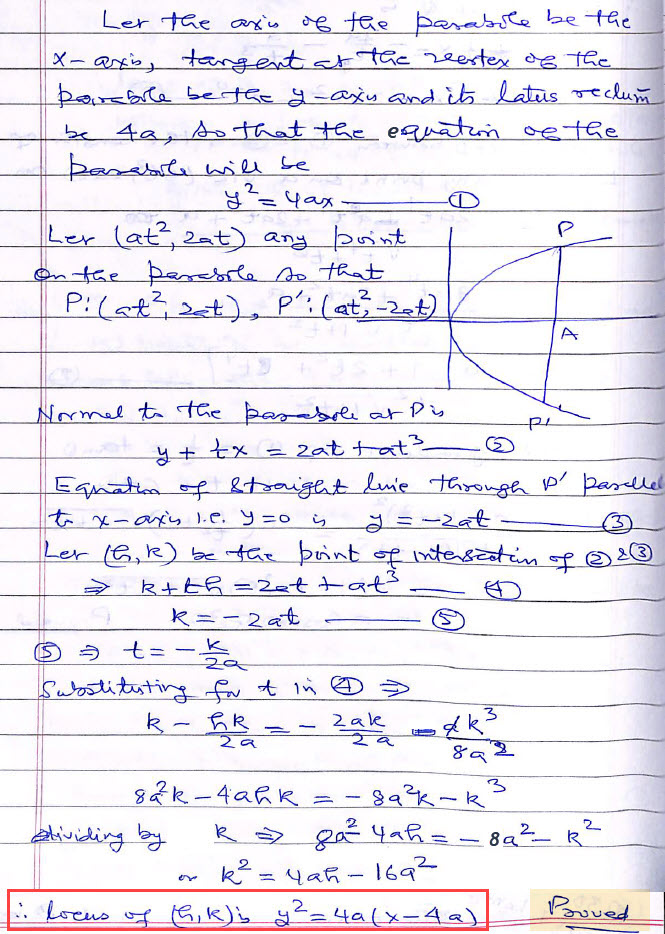 Let the axis of the parabola be the
x-axis, tangent at the vertex of the
parabola be the y-axis and its latus rectum
be 4a, so that the equation of the
parabola will be
y² = 4ax ——— ①
Let (at², 2at) any point
on the parabola so that
P:(at², 2at), P':(at², -2at)
P
A
P'
Normal to the parabola at P is
y + tx = 2at + at³ —— ②
Equation of straight line through P' parallel
to x-axis i.e. y=0 is y = -2at ——— ③
Let (h, k) be the point of intersection of ② & ③
⇒ k + th = 2at + at³ —— ④
k = -2at ——— ⑤
⑤ ⇒ t = -k/2a
Substituting for t in ④ ⇒
k - hk/2a = - 2ak/2a - ak³/8a³
8a²k - 4ahk = -8a²k - k³
dividing by k ⇒ 8a² - 4ah = -8a² - k²
or k² = 4ah - 16a²
∴ locus of (h,k) is y² = 4a(x-4a)
Proved